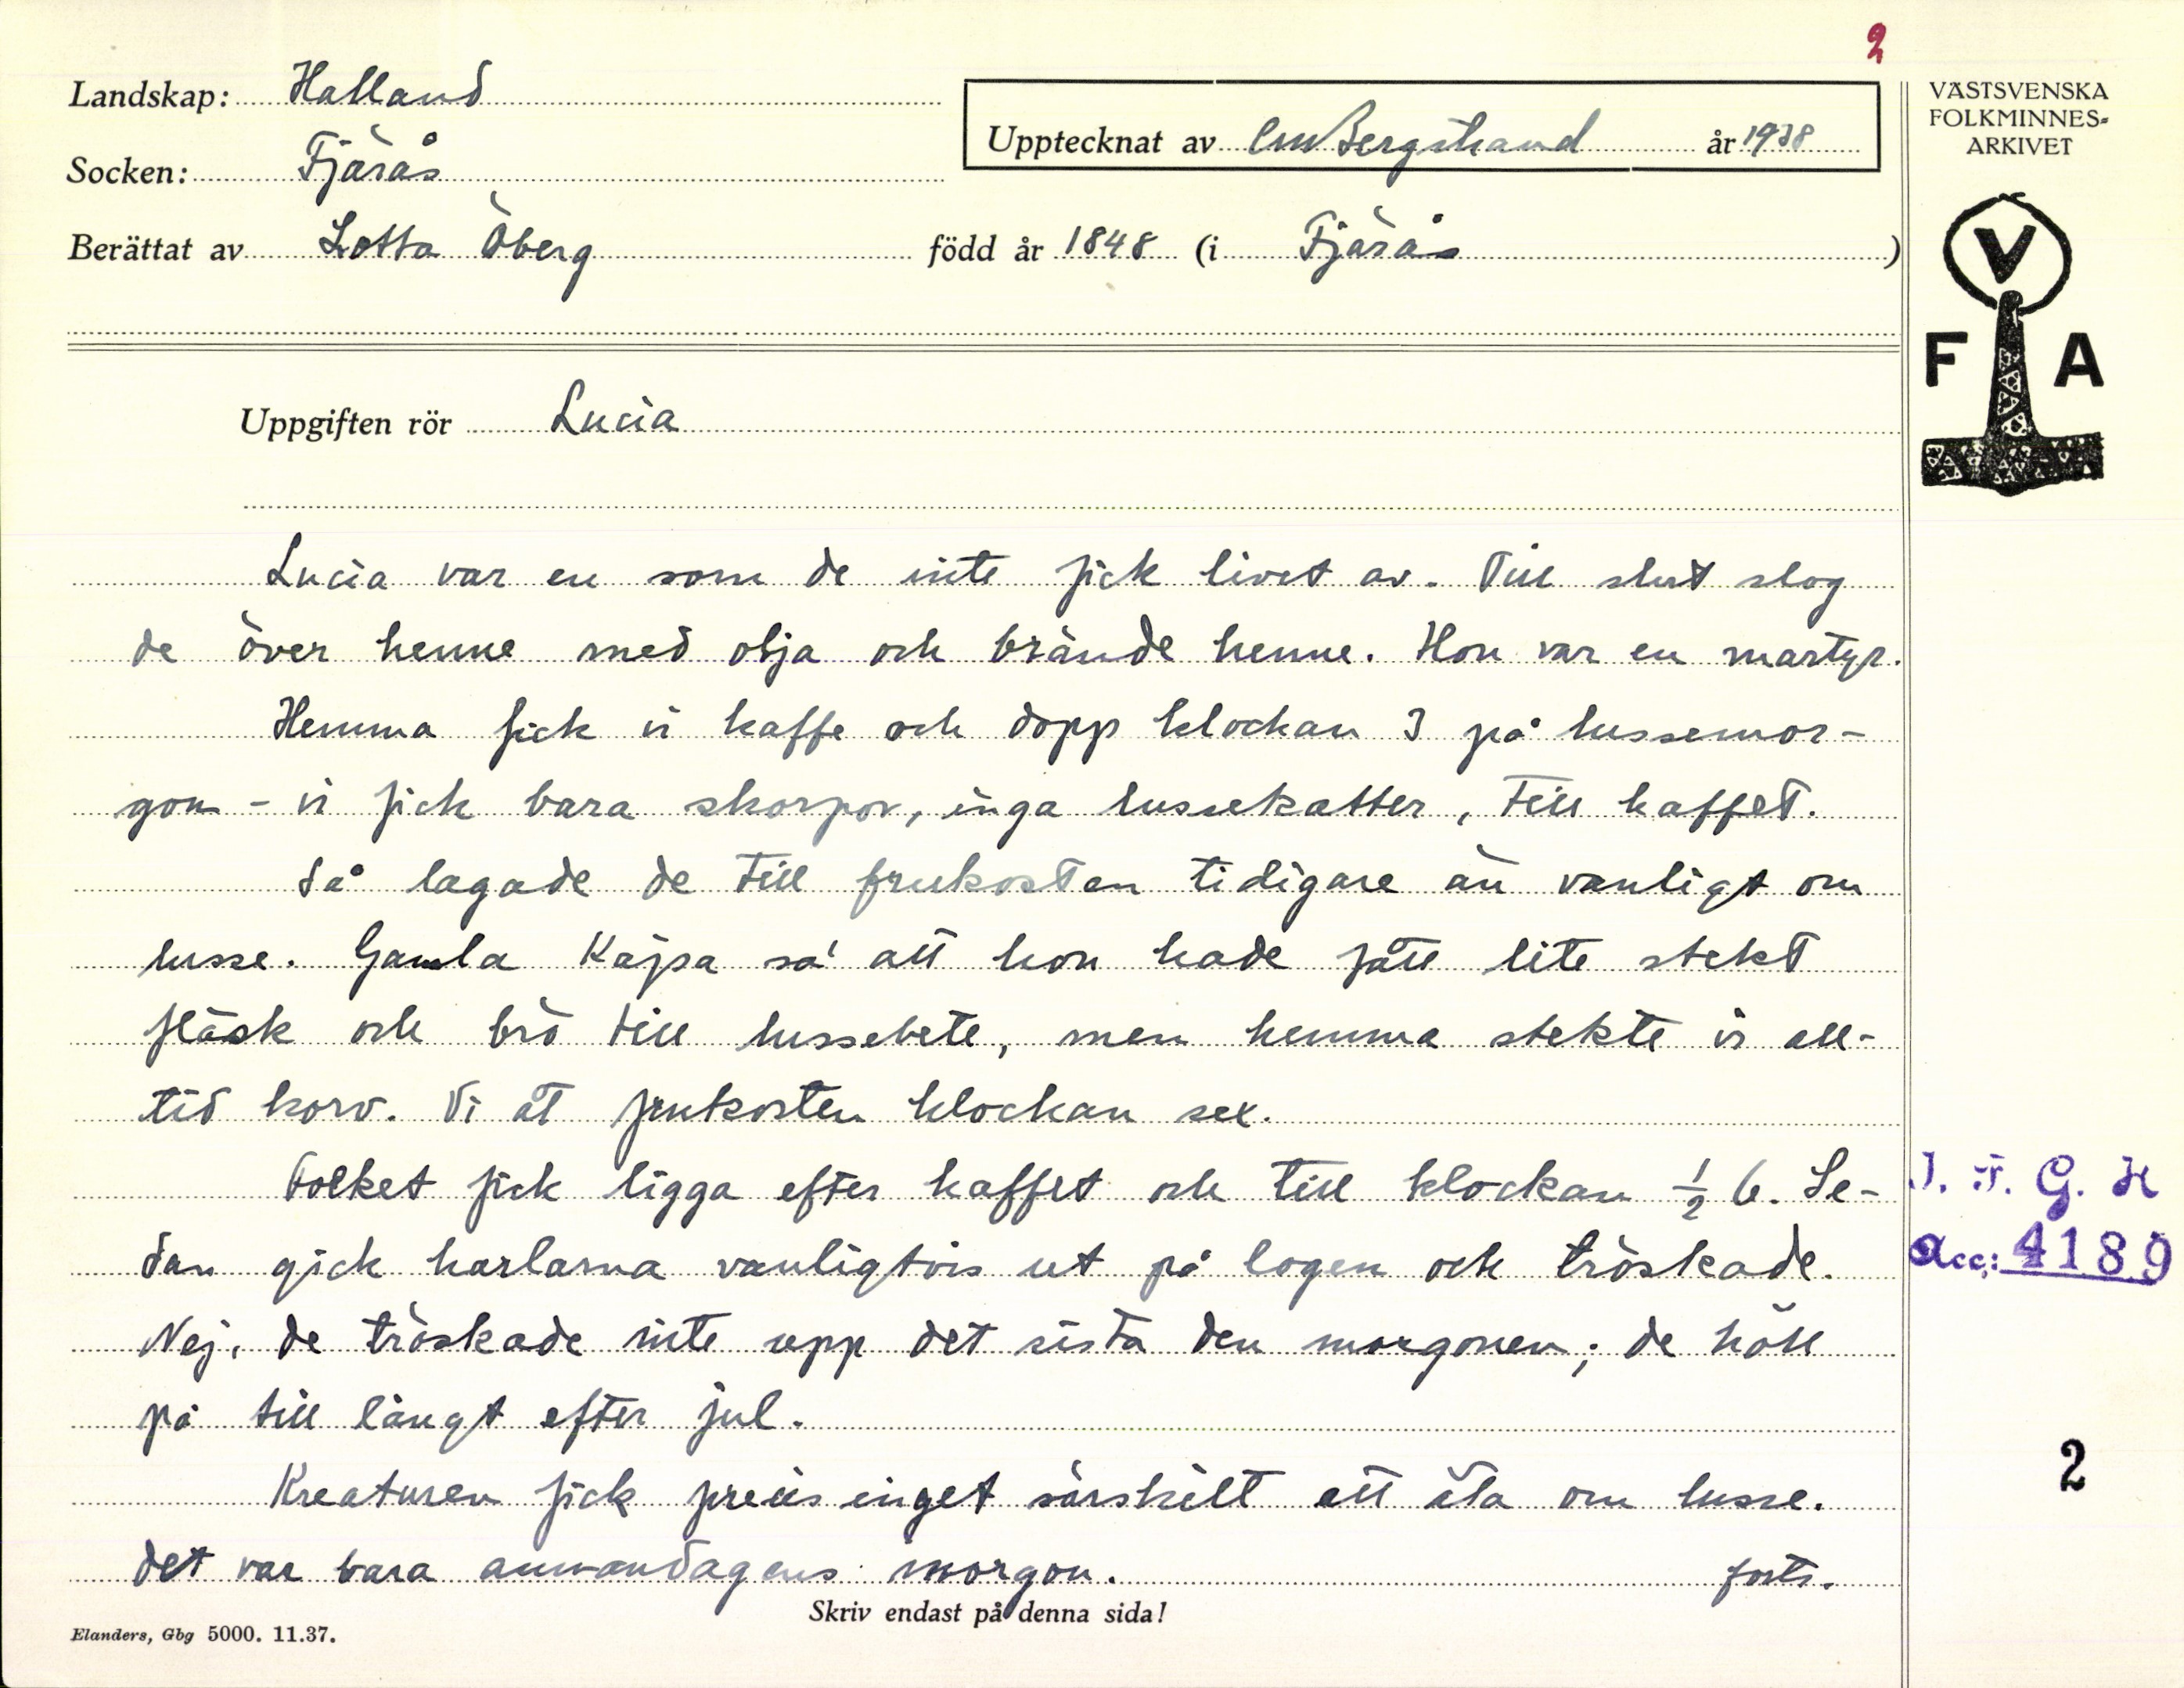 2
Landskap: Halland
Socken: Fjärås
Upptecknat av CMBergstrand år 1938
Berättat av Lotta Öberg född år 1848 (i Fjärås)
VÄSTSVENSKA
FOLKMINNES-
ARKIVET
V
F A
Uppgiften rör Lucia
Lucia var en som de inte fick livet av. Till slut slog
de över henne med olja och brände henne. Hon var en martyr.
Hemma fick vi kaffe och dopp klockan 3 på lussemor-
gon - vi fick bara skorpor, inga lussekatter, till kaffet.
Så lagade de till frukosten tidigare än vanligt om
lusse. Gamla Kajsa sa' att hon hade fått lite stekt
fläsk och brö till lussebete, men hemma stekte vi all-
tid korv. Vi åt frukosten klockan sex.
Folket fick ligga efter kaffet och till klockan ½ 6. Se-
dan gick karlarna vanligtvis ut på logen och tröskade.
Nej, de tröskade inte upp det sista den morgonen; de höll
på till långt efter jul.
Kreaturen fick precis inget särskilt att äta om lusse.
det var bara annandagens morgon. forts.
I. F. G. H
Acc: 4189
2
Skriv endast på denna sida!
Elanders, Gbg 5000. 11.37.